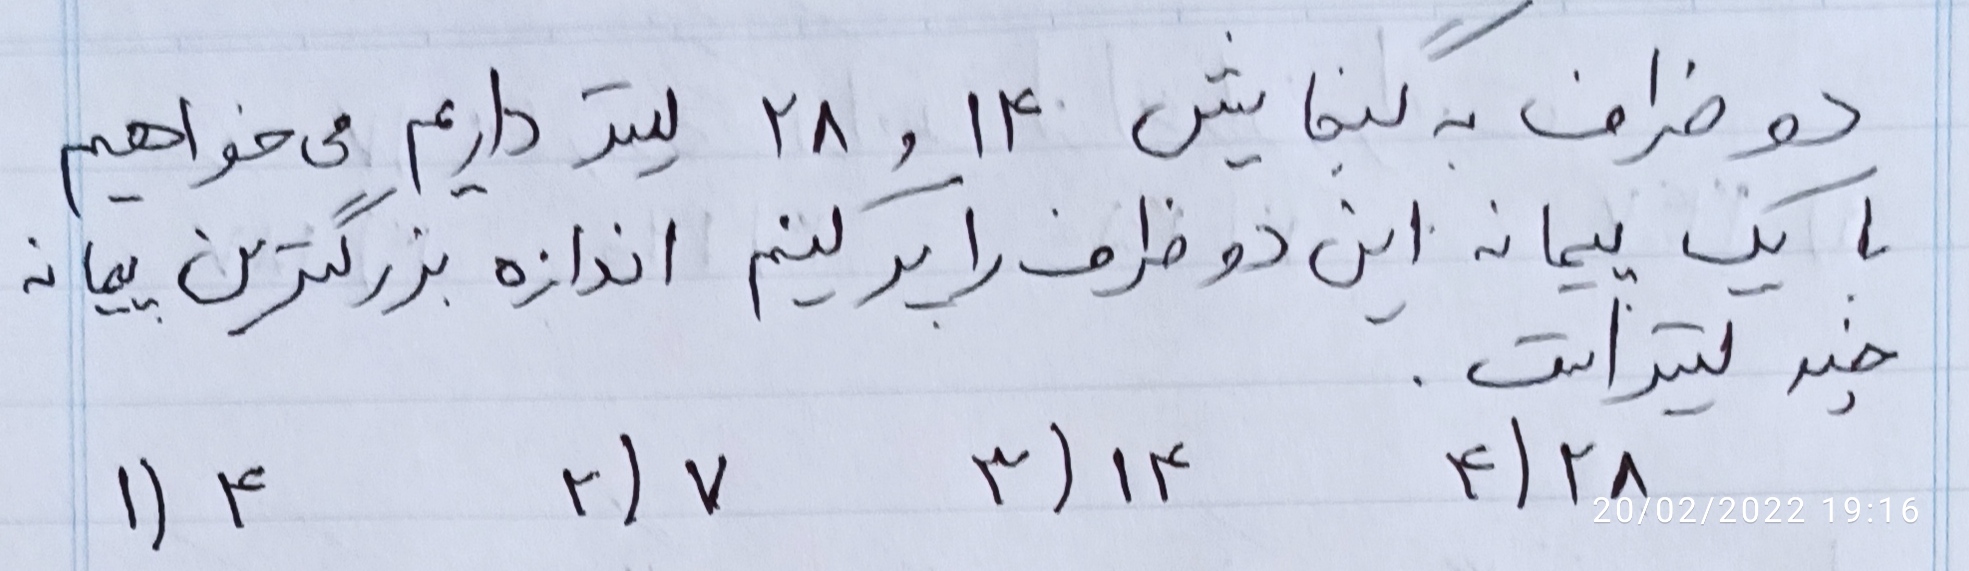 دو ظرف به گنجایش ۱۴ و ۲۸ لیتر داریم می‌خواهیم
با یک پیمانه این دو ظرف را پر کنیم اندازه بزرگترین پیمانه
چند لیتر است .
۱) ۴ ۲) ۷ ۳) ۱۴ ۴) ۲۸
20/02/2022 19:16